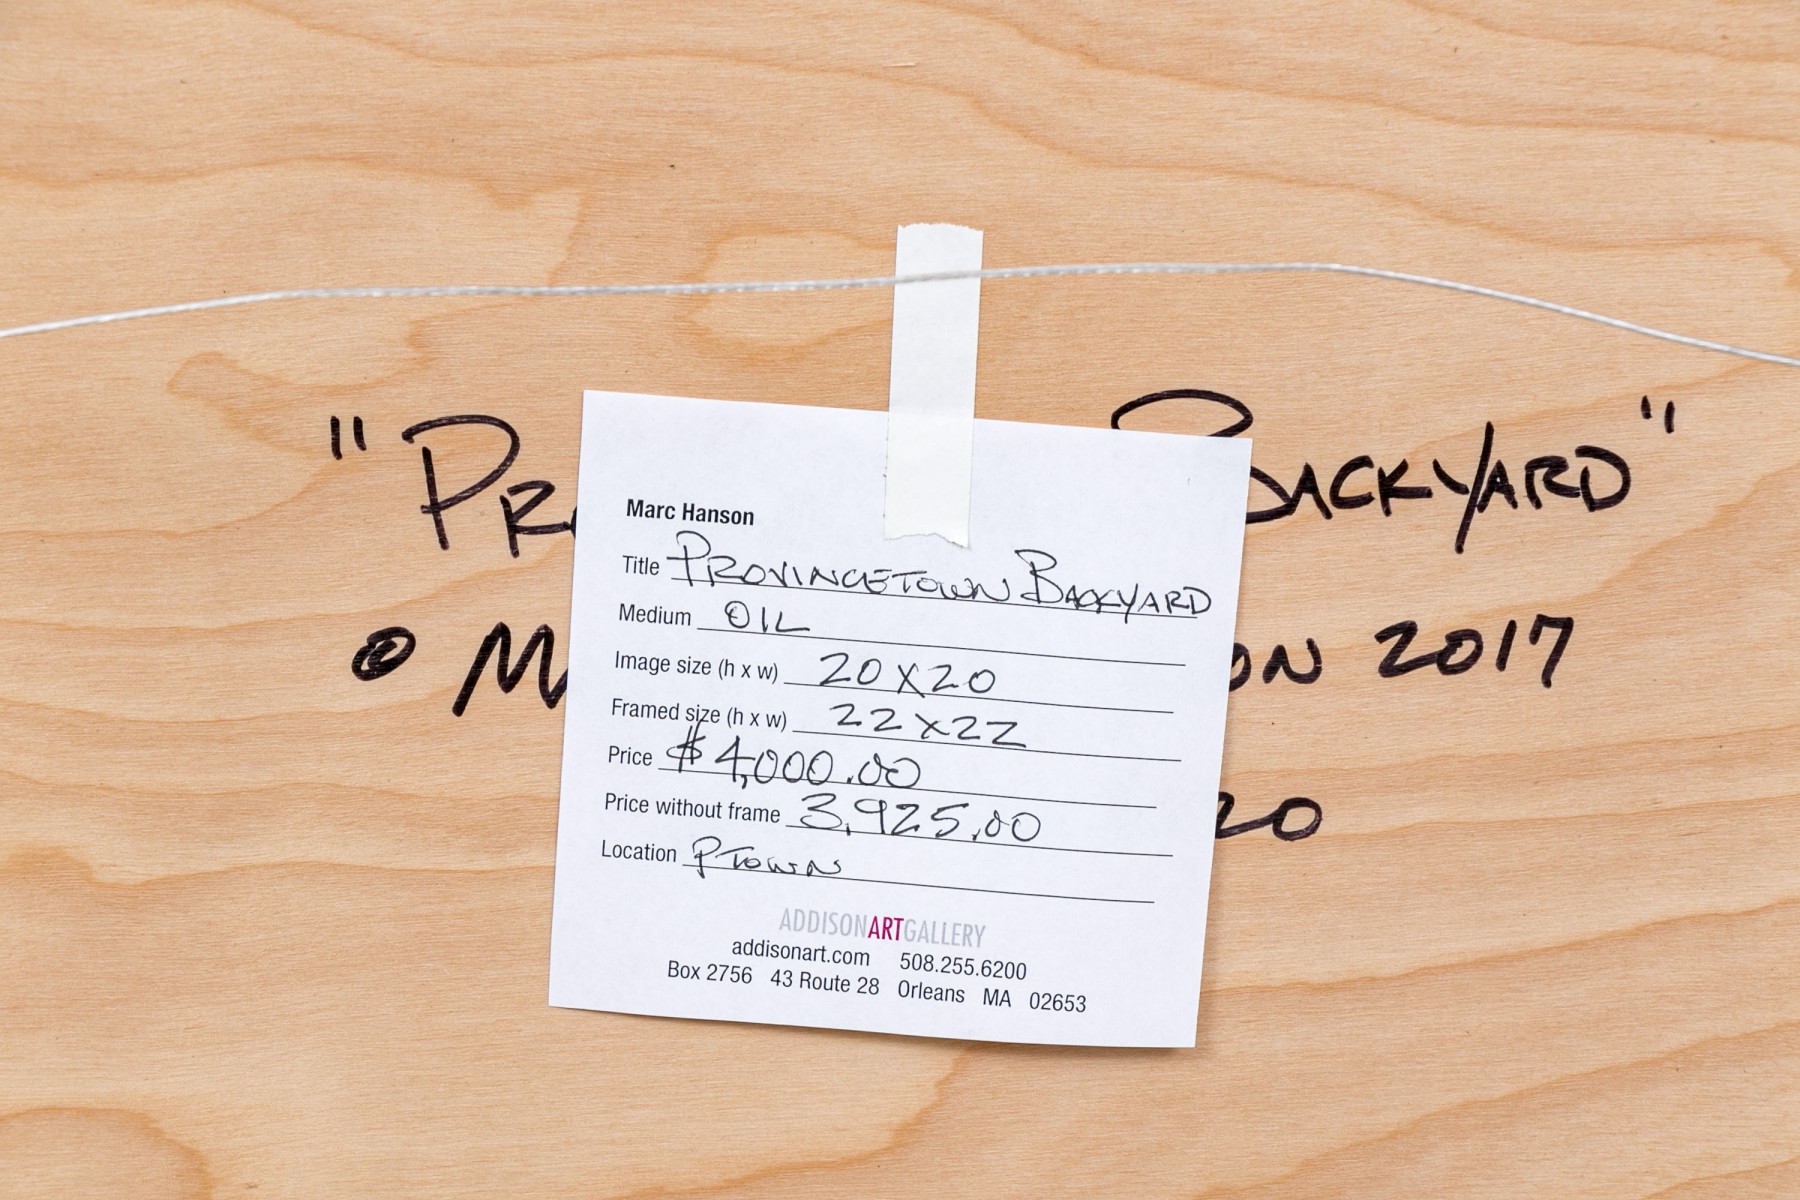 "PR BACKYARD"
Marc Hanson
Title PROVINCETOWN BACKYARD
Medium OIL
© M ON 2017
Image size (h x w) 20 X 20
Framed size (h x w) 22 X 22
Price $4,000.00
Price without frame 3,925.00
20
Location PTOWN
ADDISONARTGALLERY
addisonart.com 508.255.6200
Box 2756 43 Route 28 Orleans MA 02653